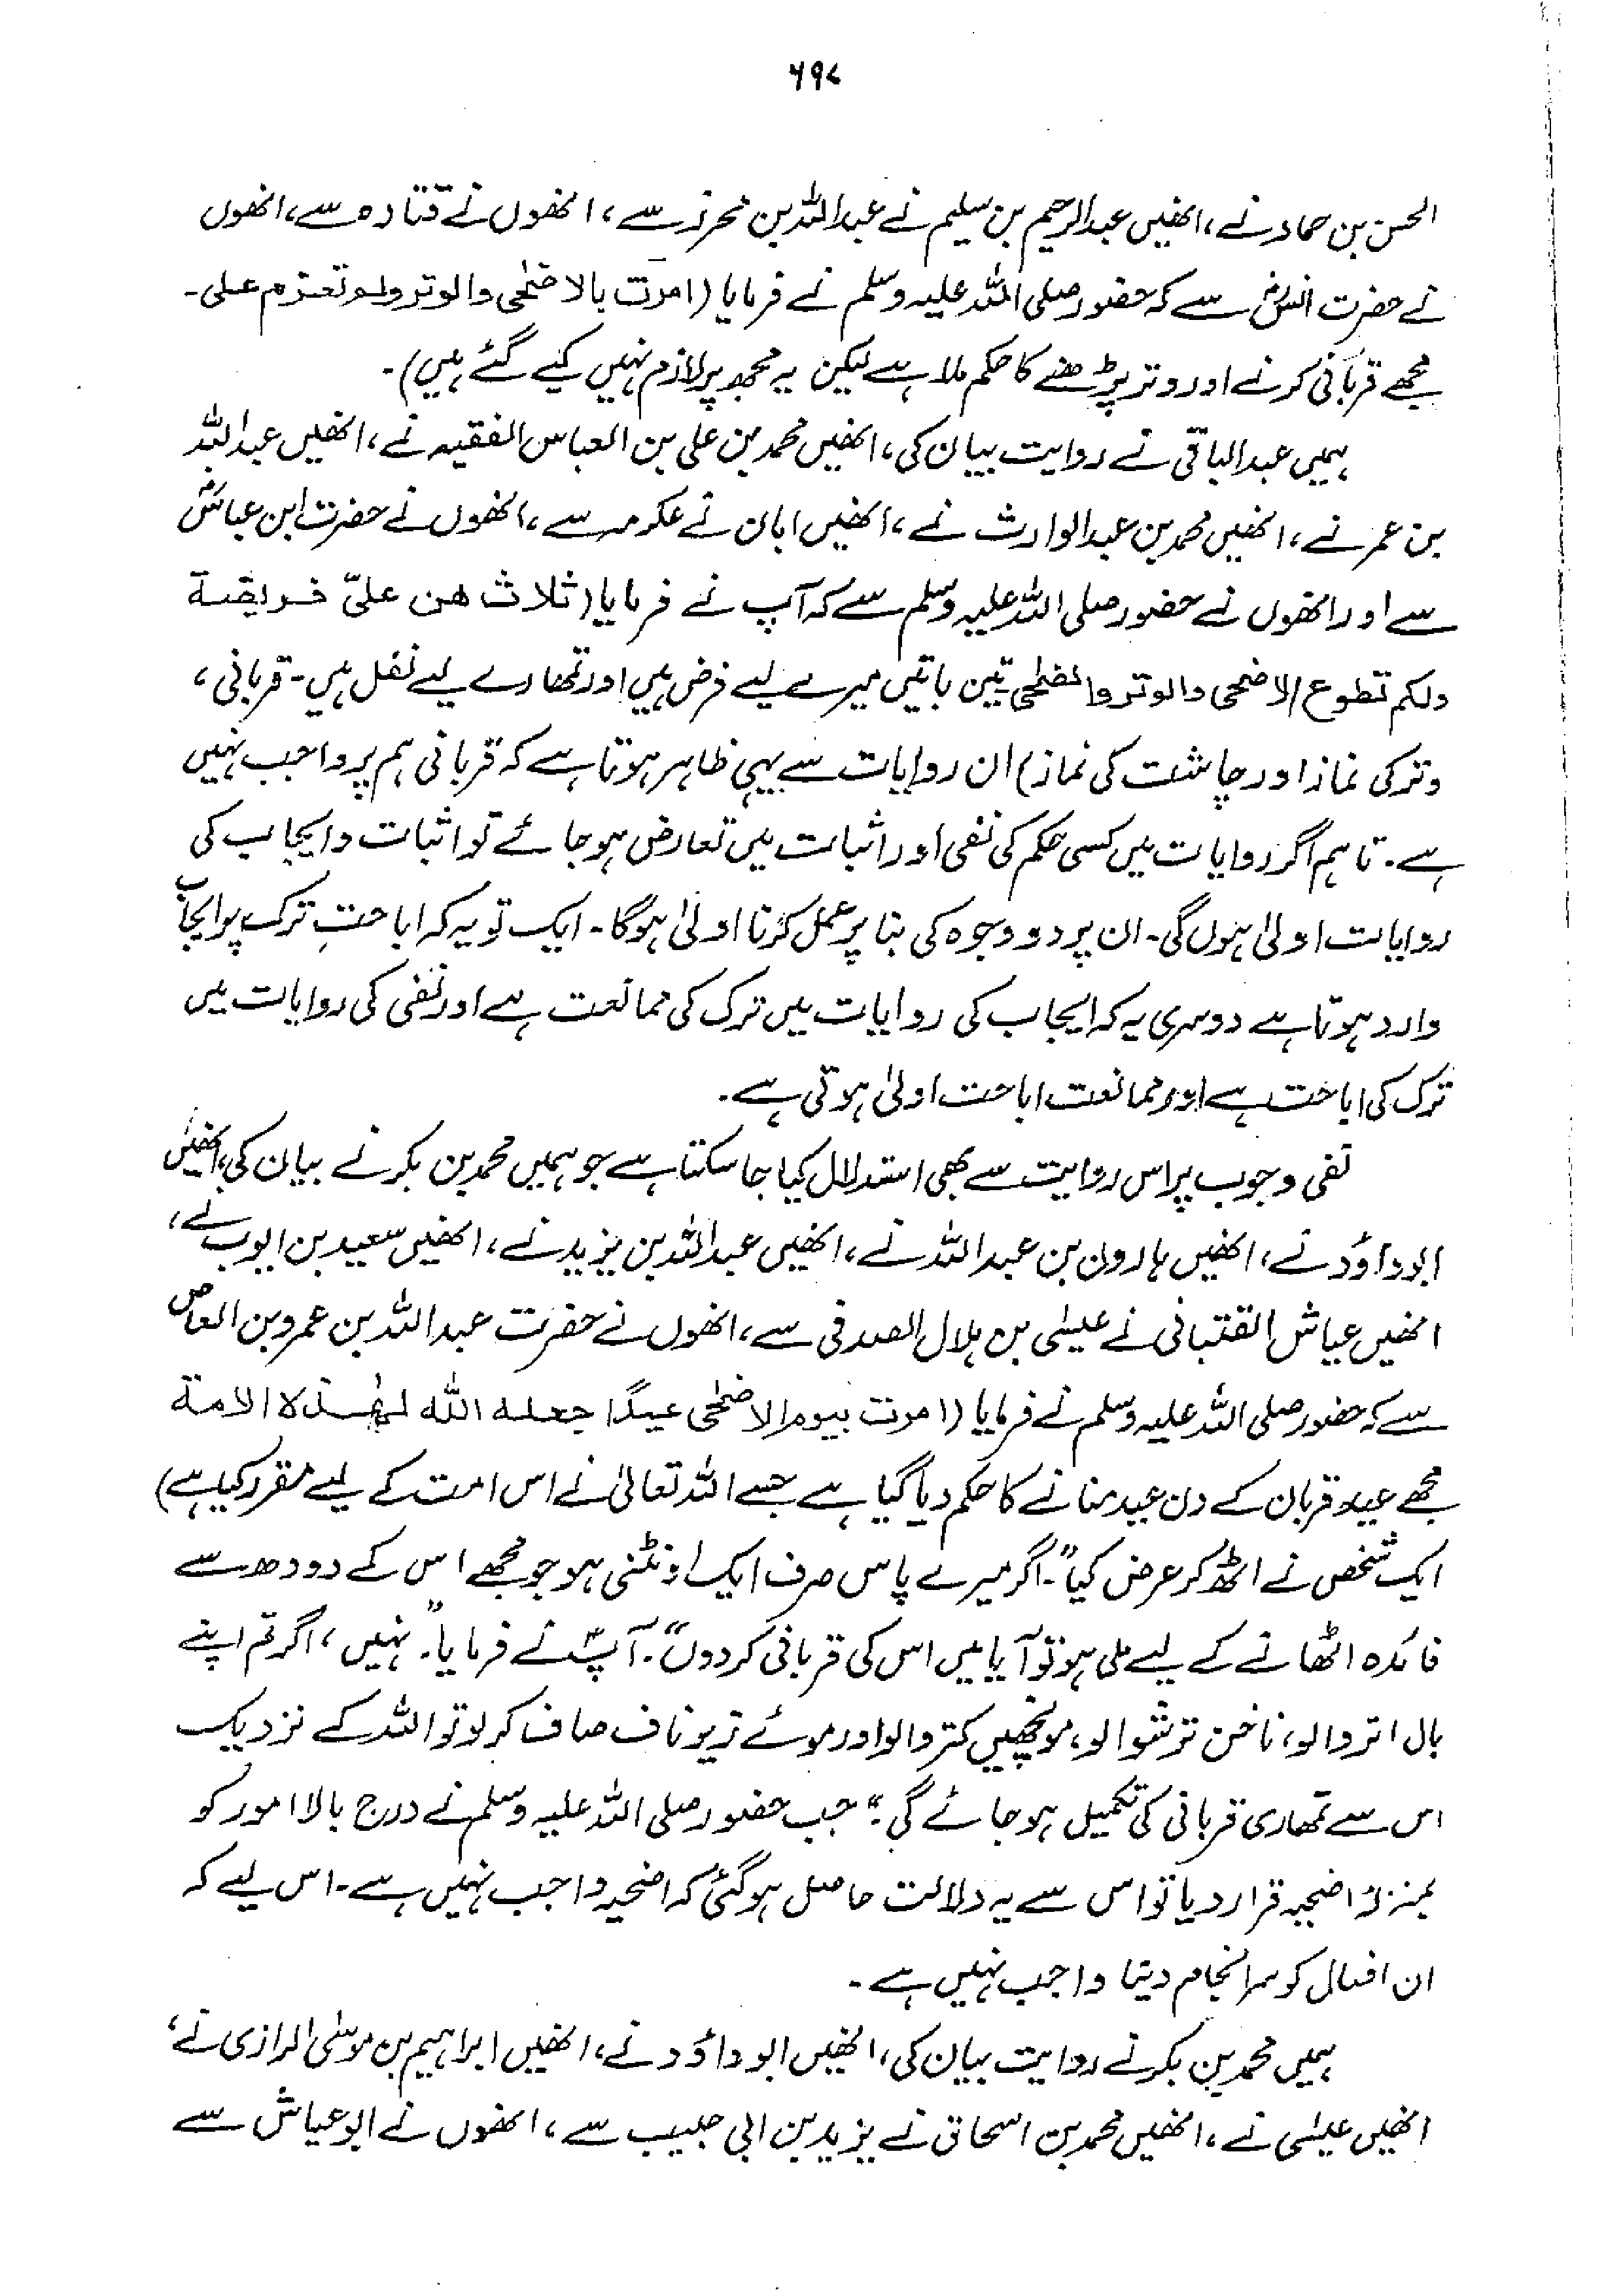 ۶۹۷
الحسن بن حماد نے، انھیں عبدالرحیم بن سلیم نے عبداللہ بن محرز سے، انھوں نے قتادہ سے، انھوں
نے حضرت انسؓ سے کہ حضور صلی اللہ علیہ وسلم نے فرمایا (امرت بالاضحٰی والوتر ولم تعزم علی۔
مجھے قربانی کرنے اور وتر پڑھنے کا حکم ملا ہے لیکن یہ مجھ پر لازم نہیں کیے گئے ہیں)۔
ہمیں عبدالباقی نے روایت بیان کی، انھیں محمد بن علی بن العباس الفقیہ نے، انھیں عبداللہ
بن عمر نے، انھیں محمد بن عبدالوارث نے، انھیں ابان نے عکرمہ سے، انھوں نے حضرت ابن عباسؓ
سے اور انھوں نے حضور صلی اللہ علیہ وسلم سے کہ آپ نے فرمایا (ثلاث ھن علیّ فریضة
ولکم تطوع الاضحی والوتر والضحٰی تین باتیں میرے لیے فرض ہیں اور تمھارے لیے نفل ہیں۔ قربانی،
وتر کی نماز اور چاشت کی نماز) ان روایات سے یہی ظاہر ہوتا ہے کہ قربانی ہم پر واجب نہیں
ہے۔ تاہم اگر روایات میں کسی حکم کی نفی اور اثبات میں تعارض ہو جائے تو اثبات و ایجاب کی
روایات اولیٰ ہوں گی۔ ان پر دو وجوہ کی بنا پر عمل کرنا اولیٰ ہوگا۔ ایک تو یہ کہ اباحتِ ترک پر ایجاب
وارد ہوتا ہے دوسری یہ کہ ایجاب کی روایات میں ترک کی ممانعت ہے اور نفی کی روایات میں
ترک کی اباحت ہے اور ممانعت اباحت اولیٰ ہوتی ہے۔
نفی وجوب پر اس روایت سے بھی استدلال کیا جا سکتا ہے جو ہمیں محمد بن بکر نے بیان کی، انھیں
ابوداؤد نے، انھیں ہارون بن عبداللہ نے، انھیں عبداللہ بن یزید نے، انھیں سعید بن ایوب نے،
انھیں عیاش القتبانی نے عیسٰی بن ہلال الصدفی سے، انھوں نے حضرت عبداللہ بن عمرو بن العاصؓ
سے کہ حضور صلی اللہ علیہ وسلم نے فرمایا (امرت بیوم الاضحٰی عیدًا جعلہ اللہ لھٰذہ الامة
مجھے عید قربان کے دن عید منانے کا حکم دیا گیا ہے جسے اللہ تعالیٰ نے اس امت کے لیے مقرر کیا ہے)
ایک شخص نے اٹھ کر عرض کیا"۔ اگر میرے پاس صرف ایک اونٹنی ہو جو مجھے اس کے دودھ سے
فائدہ اٹھانے کے لیے ملی ہو تو آیا میں اس کی قربانی کر دوں"۔ آپؐ نے فرمایا"۔ نہیں، اگر تم اپنے
بال اتروا لو، ناخن ترشوا لو، مونچھیں کتروا لو اور موئے زیر ناف صاف کر لو تو اللہ کے نزدیک
اس سے تمھاری قربانی کی تکمیل ہو جائے گی؛" جب حضور صلی اللہ علیہ وسلم نے درج بالا امور کو
بمنزلۂ اضحیہ قرار دیا تو اس سے یہ دلالت حاصل ہو گئی کہ اضحیہ واجب نہیں ہے۔ اس لیے کہ
ان افعال کو سرانجام دینا واجب نہیں ہے۔
ہمیں محمد بن بکر نے روایت بیان کی، انھیں ابوداؤد نے، انھیں ابراہیم بن موسٰی الرازی نے،
انھیں عیسٰی نے، انھیں محمد بن اسحاق نے یزید بن ابی حبیب سے، انھوں نے ابوعیاش سے